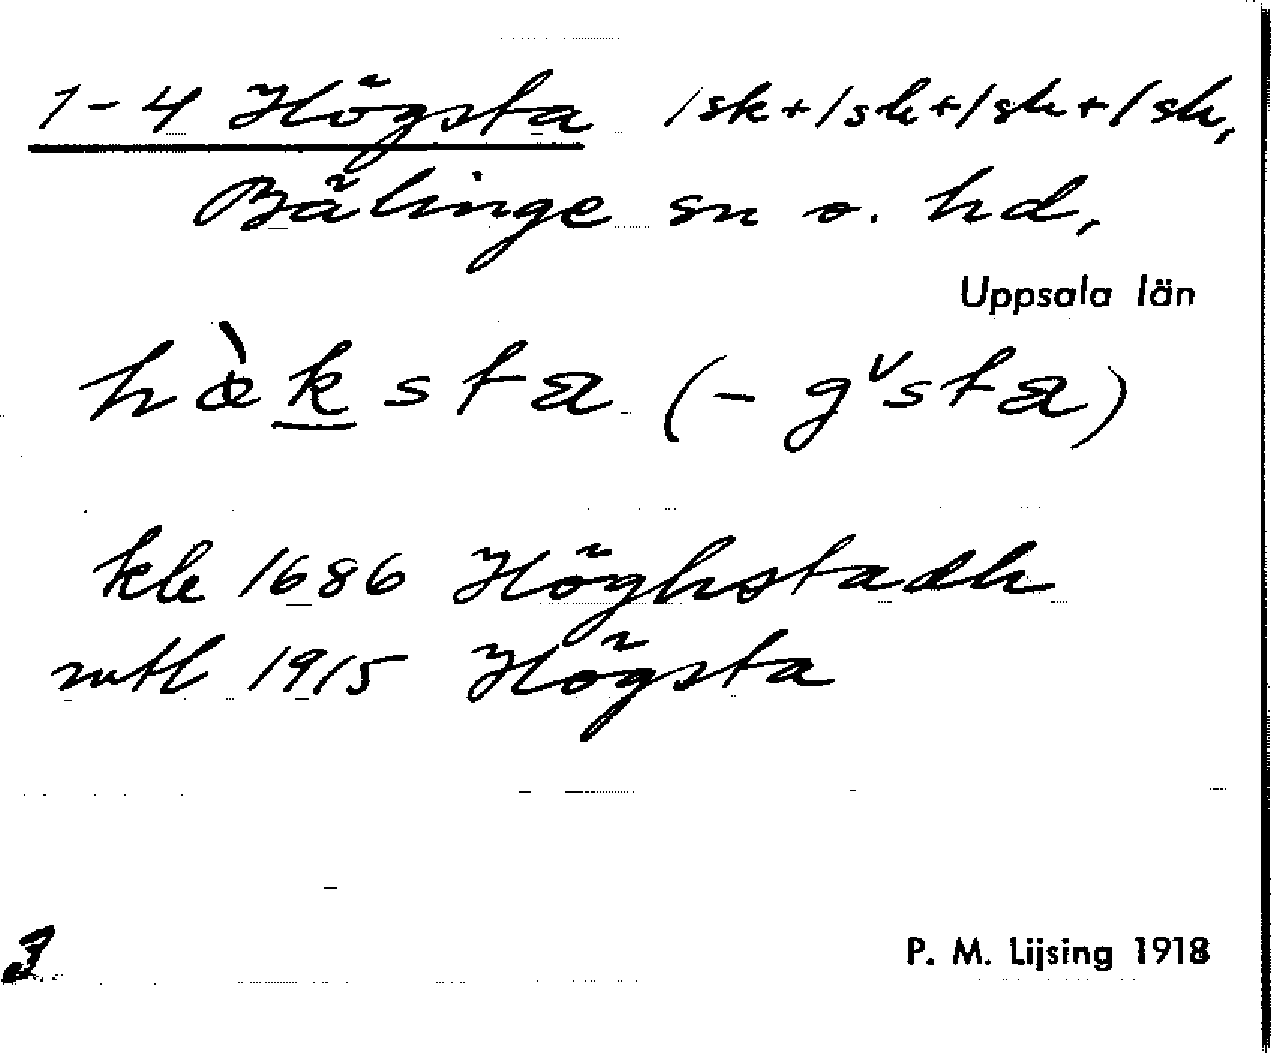 1-4 Högsta 1sk+1sk+1sk+1sk,
Bälinge sn o. hd,
Uppsala län
hœ̀ksta (-gᵛsta)
kle 1686 Höghstadh
mtl 1915 Högsta
P. M. Lijsing 1918